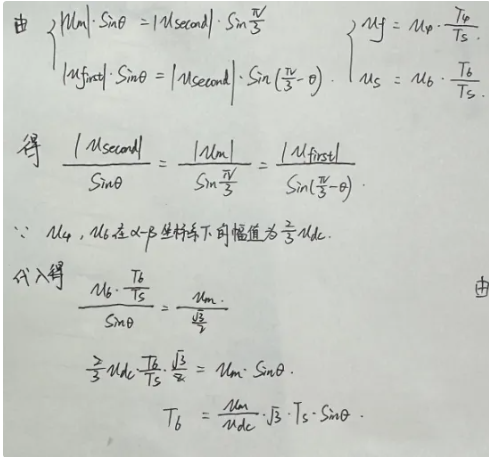 由 { |Um|·Sinθ = |Usecond|·Sin π/3   { Uf = U4·T4/Ts.
|Ufirst|·Sinθ = |Usecond|·Sin(π/3-θ).   Us = U6·T6/Ts.
得 |Usecond|/Sinθ = |Um|/Sin π/3 = |Ufirst|/Sin(π/3-θ).
∵ U4, U6在α-β坐标系下的幅值为2/3 Udc.
代入得
U6·T6/Ts / Sinθ = Um. / √3/2
由
2/3 Udc·T6/Ts·√3/2 = Um·Sinθ.
T6 = Um/Udc·√3·Ts·Sinθ.